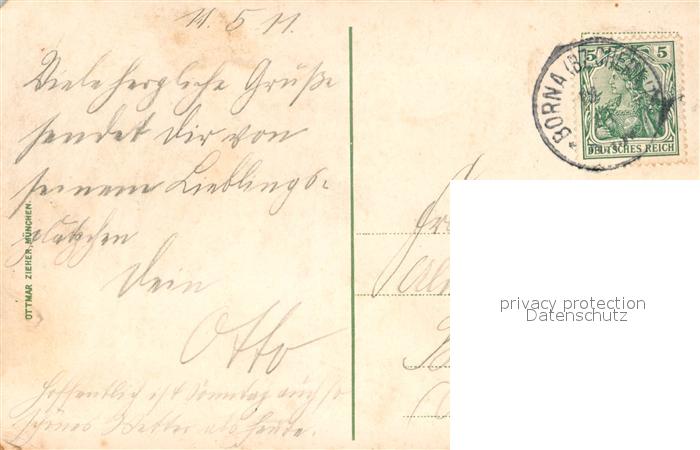 11. 5 11.
Viele herzliche Grüße
sendet Dir von
seinem Lieblings-
plätzchen
Dein
Otto
Hoffentlich ist Sonntag auch so
schönes Wetter als heute.
OTTMAR ZIEHER, MÜNCHEN.
BORNA (BZ. CHEMNITZ)
5 5
DEUTSCHES REICH
privacy protection
Datenschutz